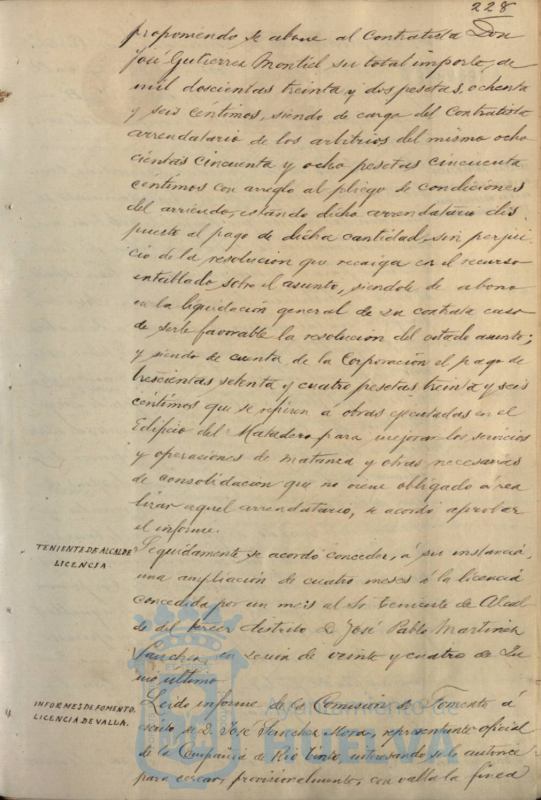 228
proponiendo se abone al Contratista Don
José Gutierrez Montiel su total importe, de
mil doscientas treinta y dos pesetas, ochenta
y seis céntimos, siendo de cargo del Contratista
arrendatario de los arbitrios del mismo ocho
cientas cincuenta y ocho pesetas cincuenta
céntimos con arreglo al pliego de condiciones
del arriendo, estando dicho arrendatario dis
puesto al pago de dicha cantidad, sin perjui
cio de la resolucion que recaiga en el recurso
entablado sobre el asunto, siendole de abono
en la liquidación general de su contrata caso
de serle favorable la resolucion del citado asunto;
y siendo de cuenta de la Corporación el pago de
trescientas setenta y cuatro pesetas treinta y seis
céntimos que se refieren a obras ejecutadas en el
Edificio del Matadero para mejorar los servicios
y operaciones de matanza y otras necesarias
de consolidacion que no viene obligado á rea
lizar aquel arrendatario, se acordó aprobar
el informe.
TENIENTE DE ALCALDE
LICENCIA
Seguidamente se acordó conceder, á su instancia,
una ampliación de cuatro meses á la licencia
concedida por un mes al Sr. Teniente de Alcal
de del tercer distrito D. José Pablo Martinez
Sanchez, en sesion de veinte y cuatro de Ju
nio último
INFORMES DE FOMENTO.
LICENCIA DE VALLA.
Leido informe de la Comision de Fomento á
escrito de D. José Sanchez Mora, representante oficial
de la Compañia de Rio Tinto, interesando se le autorice
para cercar, provisionalmente, con valla la finca
Ayuntamiento
HUELVA